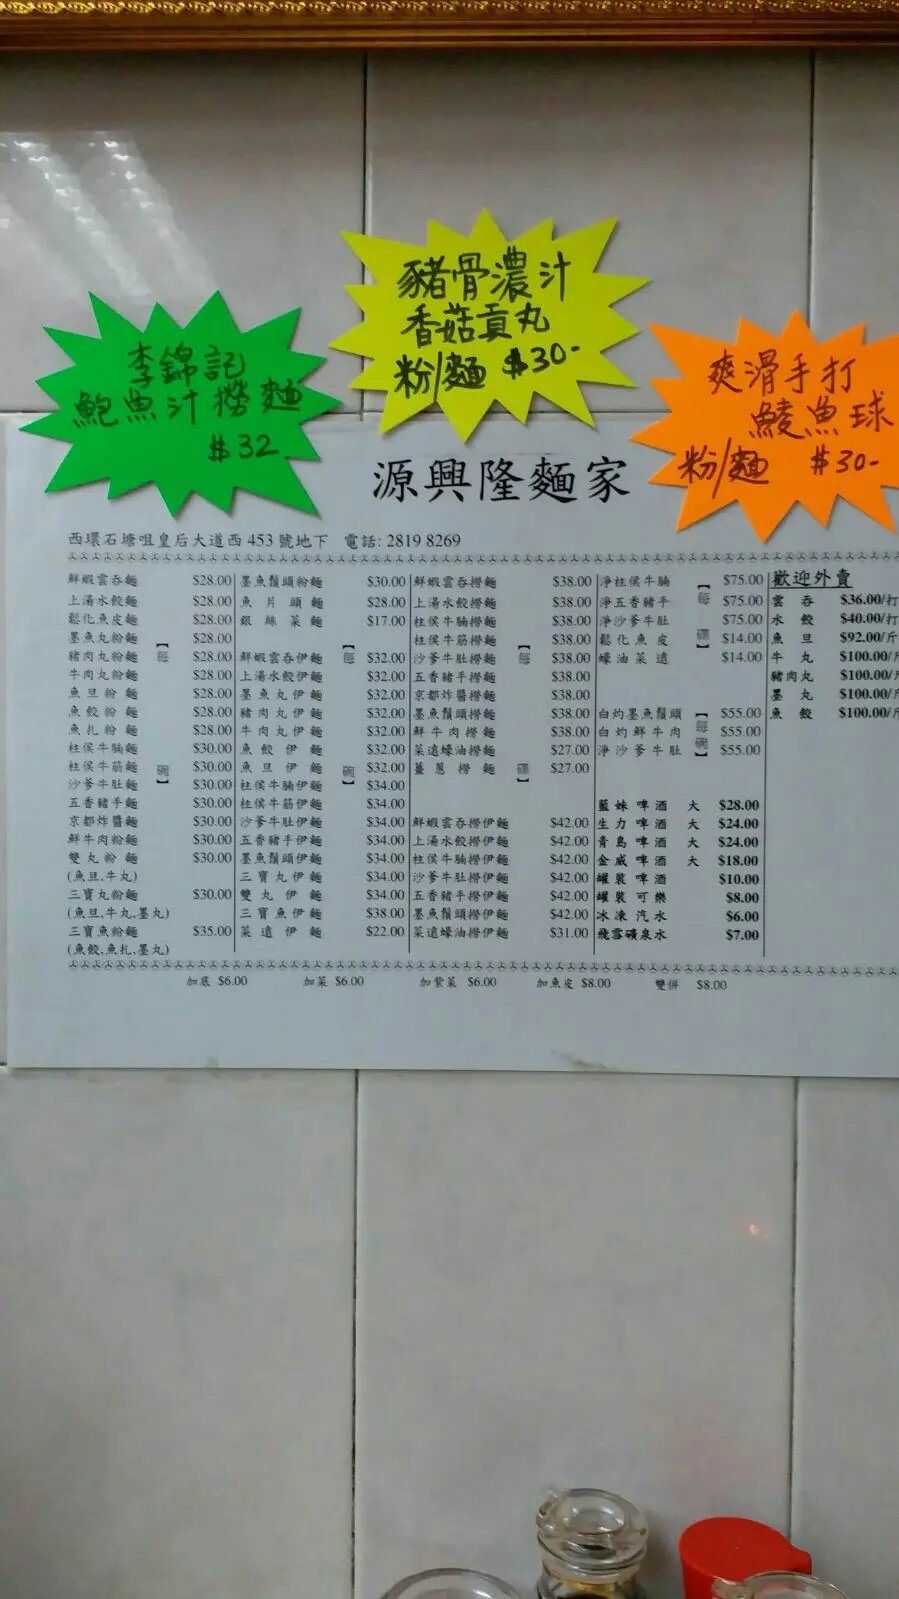 豬骨濃汁
香菇貢丸
粉/麵 $30-
李錦記
鮑魚汁撈麵
$32
爽滑手打
鯪魚球
粉/麵 $30-
源興隆麵家
西環石塘咀皇后大道西 453 號地下 電話: 2819 8269
鮮蝦雲吞麵 $28.00
上湯水餃麵 $28.00
鬆化魚皮麵 $28.00
墨魚丸粉麵 $28.00
豬肉丸粉麵 $28.00
牛肉丸粉麵 $28.00
魚旦粉麵 $28.00
魚餃粉麵 $28.00
魚扎粉麵 $28.00
柱侯牛腩麵 $30.00
柱侯牛筋麵 $30.00
沙爹牛肚麵 $30.00
五香豬手麵 $30.00
京都炸醬麵 $30.00
鮮牛肉粉麵 $30.00
雙丸粉麵 $30.00
(魚旦,牛丸)
三寶丸粉麵 $30.00
(魚旦,牛丸,墨丸)
三寶魚粉麵 $35.00
(魚餃,魚扎,墨丸)
【每碗】
墨魚鬚頭粉麵 $30.00
魚片頭麵 $28.00
銀絲菜麵 $17.00
鮮蝦雲吞伊麵 $32.00
上湯水餃伊麵 $32.00
墨魚丸伊麵 $32.00
豬肉丸伊麵 $32.00
牛肉丸伊麵 $32.00
魚餃伊麵 $32.00
魚旦伊麵 $32.00
柱侯牛腩伊麵 $34.00
柱侯牛筋伊麵 $34.00
沙爹牛肚伊麵 $34.00
五香豬手伊麵 $34.00
墨魚鬚頭伊麵 $34.00
三寶丸伊麵 $34.00
雙丸伊麵 $34.00
三寶魚伊麵 $38.00
菜遠伊麵 $22.00
【每碗】
鮮蝦雲吞撈麵 $38.00
上湯水餃撈麵 $38.00
柱侯牛腩撈麵 $38.00
柱侯牛筋撈麵 $38.00
沙爹牛肚撈麵 $38.00
五香豬手撈麵 $38.00
京都炸醬撈麵 $38.00
墨魚鬚頭撈麵 $38.00
鮮牛肉撈麵 $38.00
菜遠蠔油撈麵 $27.00
薑蔥撈麵 $27.00
【每碟】
鮮蝦雲吞撈伊麵 $42.00
上湯水餃撈伊麵 $42.00
柱侯牛腩撈伊麵 $42.00
沙爹牛肚撈伊麵 $42.00
五香豬手撈伊麵 $42.00
墨魚鬚頭撈伊麵 $42.00
菜遠蠔油撈伊麵 $31.00
淨柱侯牛腩 $75.00
淨五香豬手 $75.00
淨沙爹牛肚 $75.00
鬆化魚皮 $14.00
蠔油菜遠 $14.00
【每碟】
白灼墨魚鬚頭 $55.00
白灼鮮牛肉 $55.00
淨沙爹牛肚 $55.00
【每碗】
藍妹啤酒 大 $28.00
生力啤酒 大 $24.00
青島啤酒 大 $24.00
金威啤酒 大 $18.00
罐裝啤酒 $10.00
罐裝可樂 $8.00
冰凍汽水 $6.00
飛雪礦泉水 $7.00
歡迎外賣
雲吞 $36.00/打
水餃 $40.00/打
魚旦 $92.00/斤
牛丸 $100.00/斤
豬肉丸 $100.00/斤
墨丸 $100.00/斤
魚餃 $100.00/斤
加底 $6.00 加菜 $6.00 加紫菜 $6.00 加魚皮 $8.00 雙併 $8.00